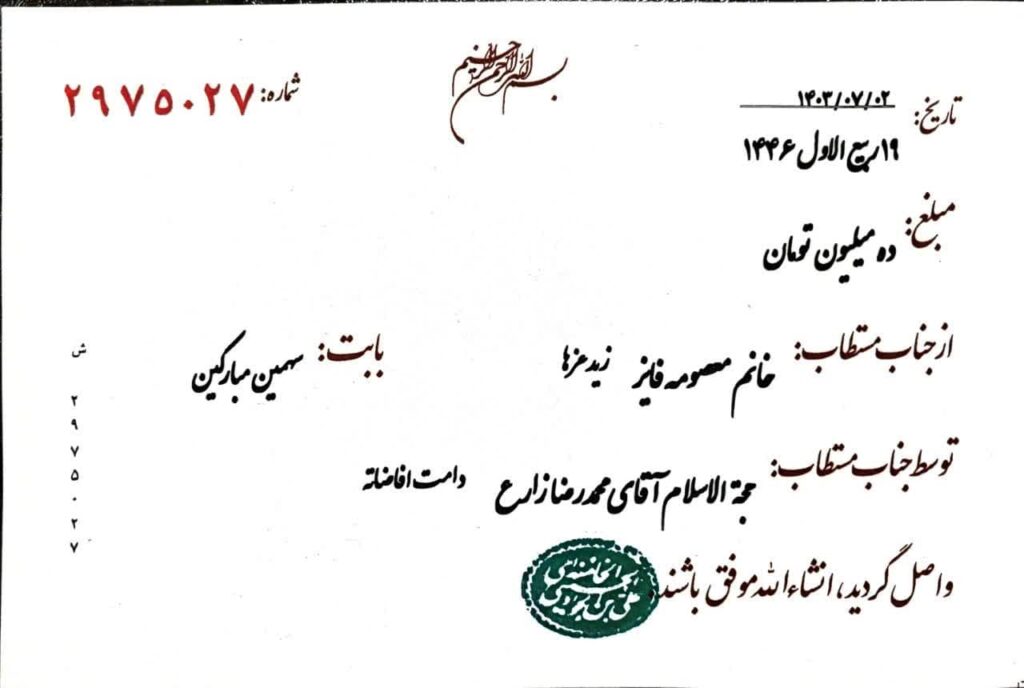 بسم الله الرحمن الرحیم
تاریخ: ۱۴۰۳/۰۷/۰۲
شماره: ۲۹۷۵۰۲۷
۱۹ ربیع الاول ۱۴۴۶
مبلغ: ده میلیون تومان
از جناب مستطاب: خانم معصومه فایز زید عزها
بابت: سهمین مبارکین
توسط جناب مستطاب: حجة الاسلام آقای محمدرضا زارع دامت افاضاته
واصل گردید، انشاءالله موفق باشند.
ش
۲
۹
۷
۵
۰
۲
۷